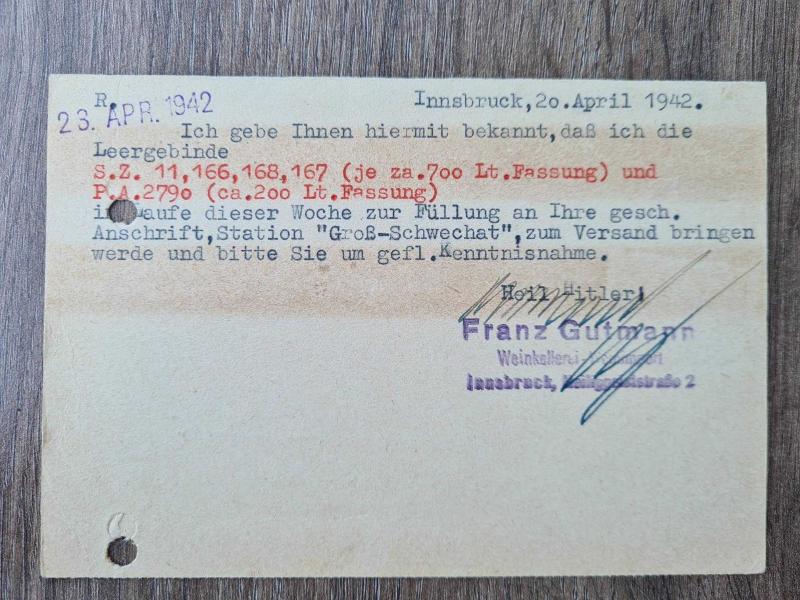 R.
23. APR. 1942
Innsbruck,2o.April 1942.
Ich gebe Ihnen hiermit bekannt,daß ich die
Leergebinde
S.Z. 11,166,168,167 (je za.7oo Lt.Fassung) und
P.A.279o (ca.2oo Lt.Fassung)
dieser Woche zur Füllung an Ihre gesch.
Anschrift,Station "Groß-Schwechat",zum Versand bringen
werde und bitte Sie um gefl.Kenntnisnahme.
Heil Hitler!
Franz Gutmann
Weinkellerei
Innsbruck, Heiliggeiststraße 2